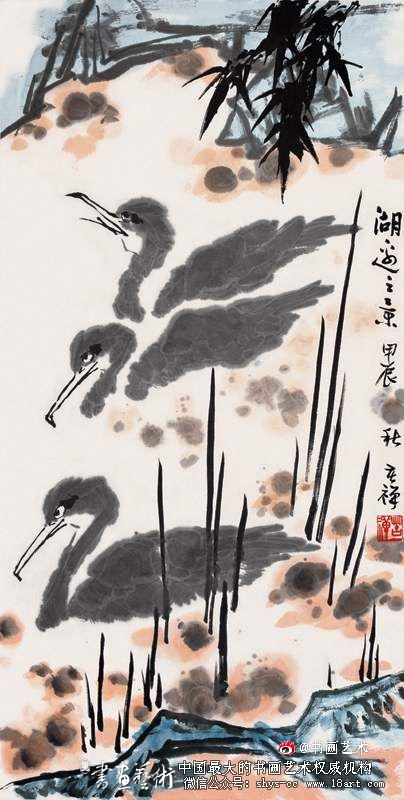 湖边之京 甲辰 秋 孝禅
@书画艺术
書画藝術
中国最大的书画艺术权威机构
微信公众号：shys-cc www.18art.com